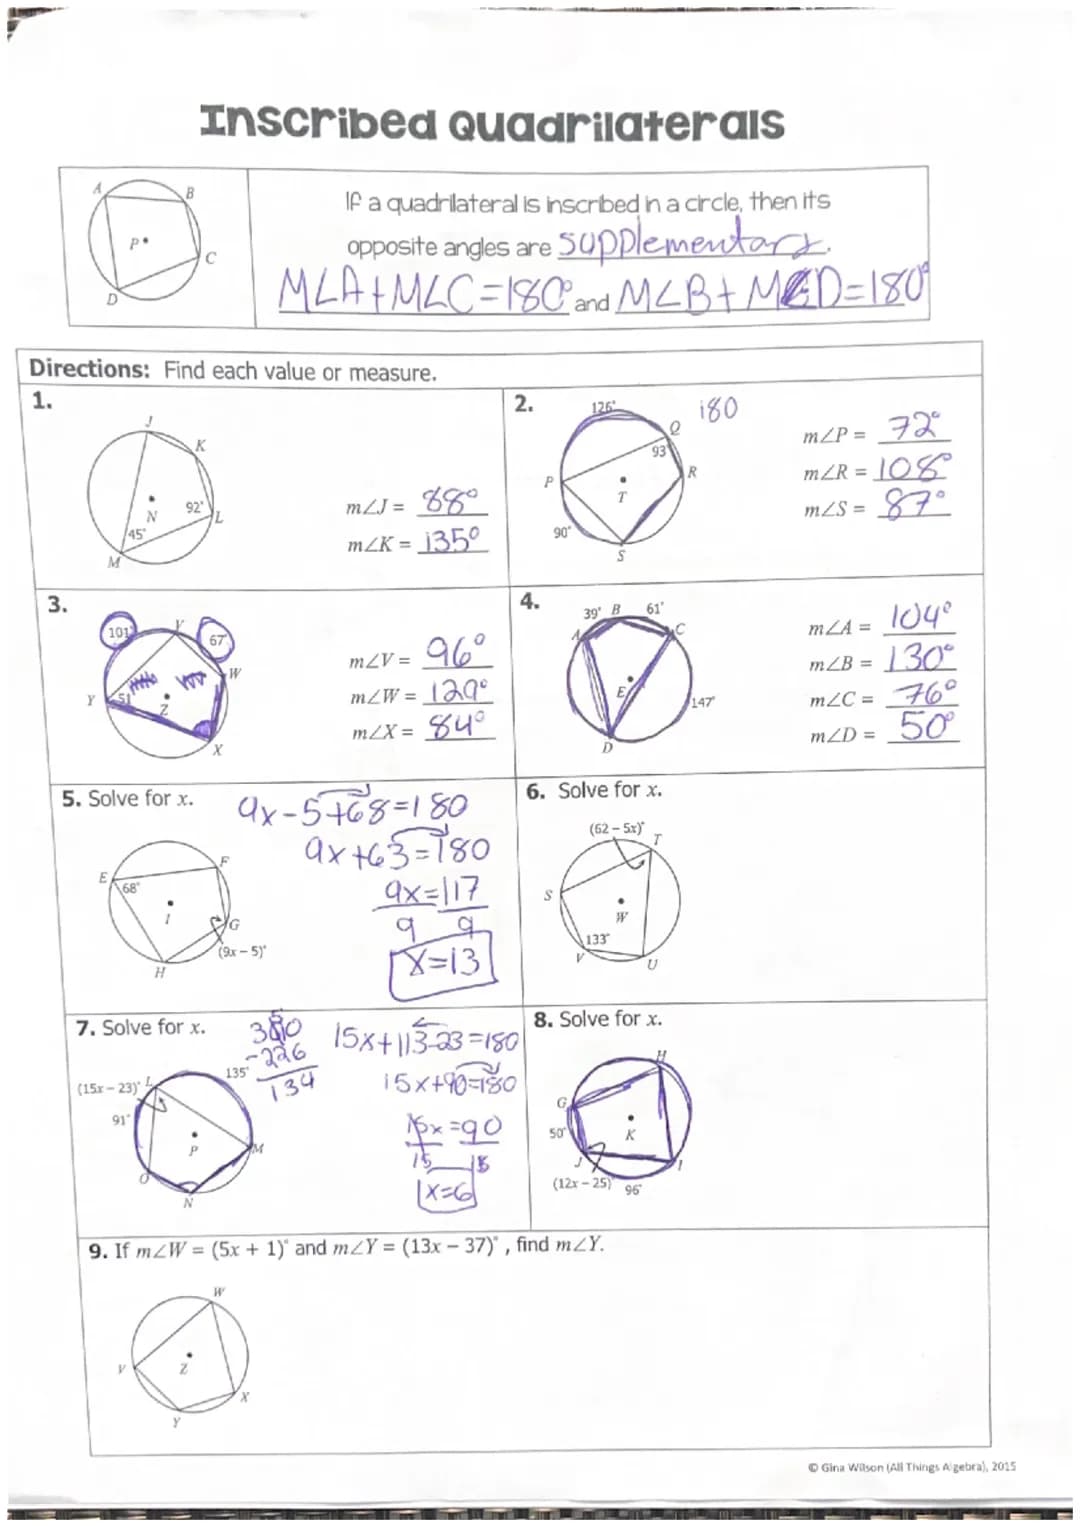 Inscribed Quadrilaterals
A
B
P
C
D
If a quadrilateral is inscribed in a circle, then its
opposite angles are supplementary.
M∠A+M∠C=180° and M∠B+M∠D=180°
Directions: Find each value or measure.
1.
J
K
N
92°
L
45°
M
m∠J = 88°
m∠K = 135°
2.
126°
180
Q
93°
P
R
T
90°
S
m∠P = 72°
m∠R = 108°
m∠S = 87°
3.
101°
V
67°
W
Y
51°
Z
X
m∠V = 96°
m∠W = 129°
m∠X = 84°
4.
39° B 61°
A
C
E
147°
D
m∠A = 104°
m∠B = 130°
m∠C = 76°
m∠D = 50°
5. Solve for x.
9x-5+68=180
9x+63=180
9x=117
9 9
x=13
E
F
68°
I
G
(9x – 5)°
H
6. Solve for x.
(62 – 5x)°
T
S
W
133°
V
U
7. Solve for x.
360
-226
134
15x+113-23=180
15x+90=180
15x=90
15 15
x=6
135°
(15x – 23)° L
91°
P
M
O
N
8. Solve for x.
H
G
50°
K
J
I
(12x – 25)°
96°
9. If m∠W = (5x + 1)° and m∠Y = (13x – 37)°, find m∠Y.
W
V
Z
X
Y
© Gina Wilson (All Things Algebra), 2015